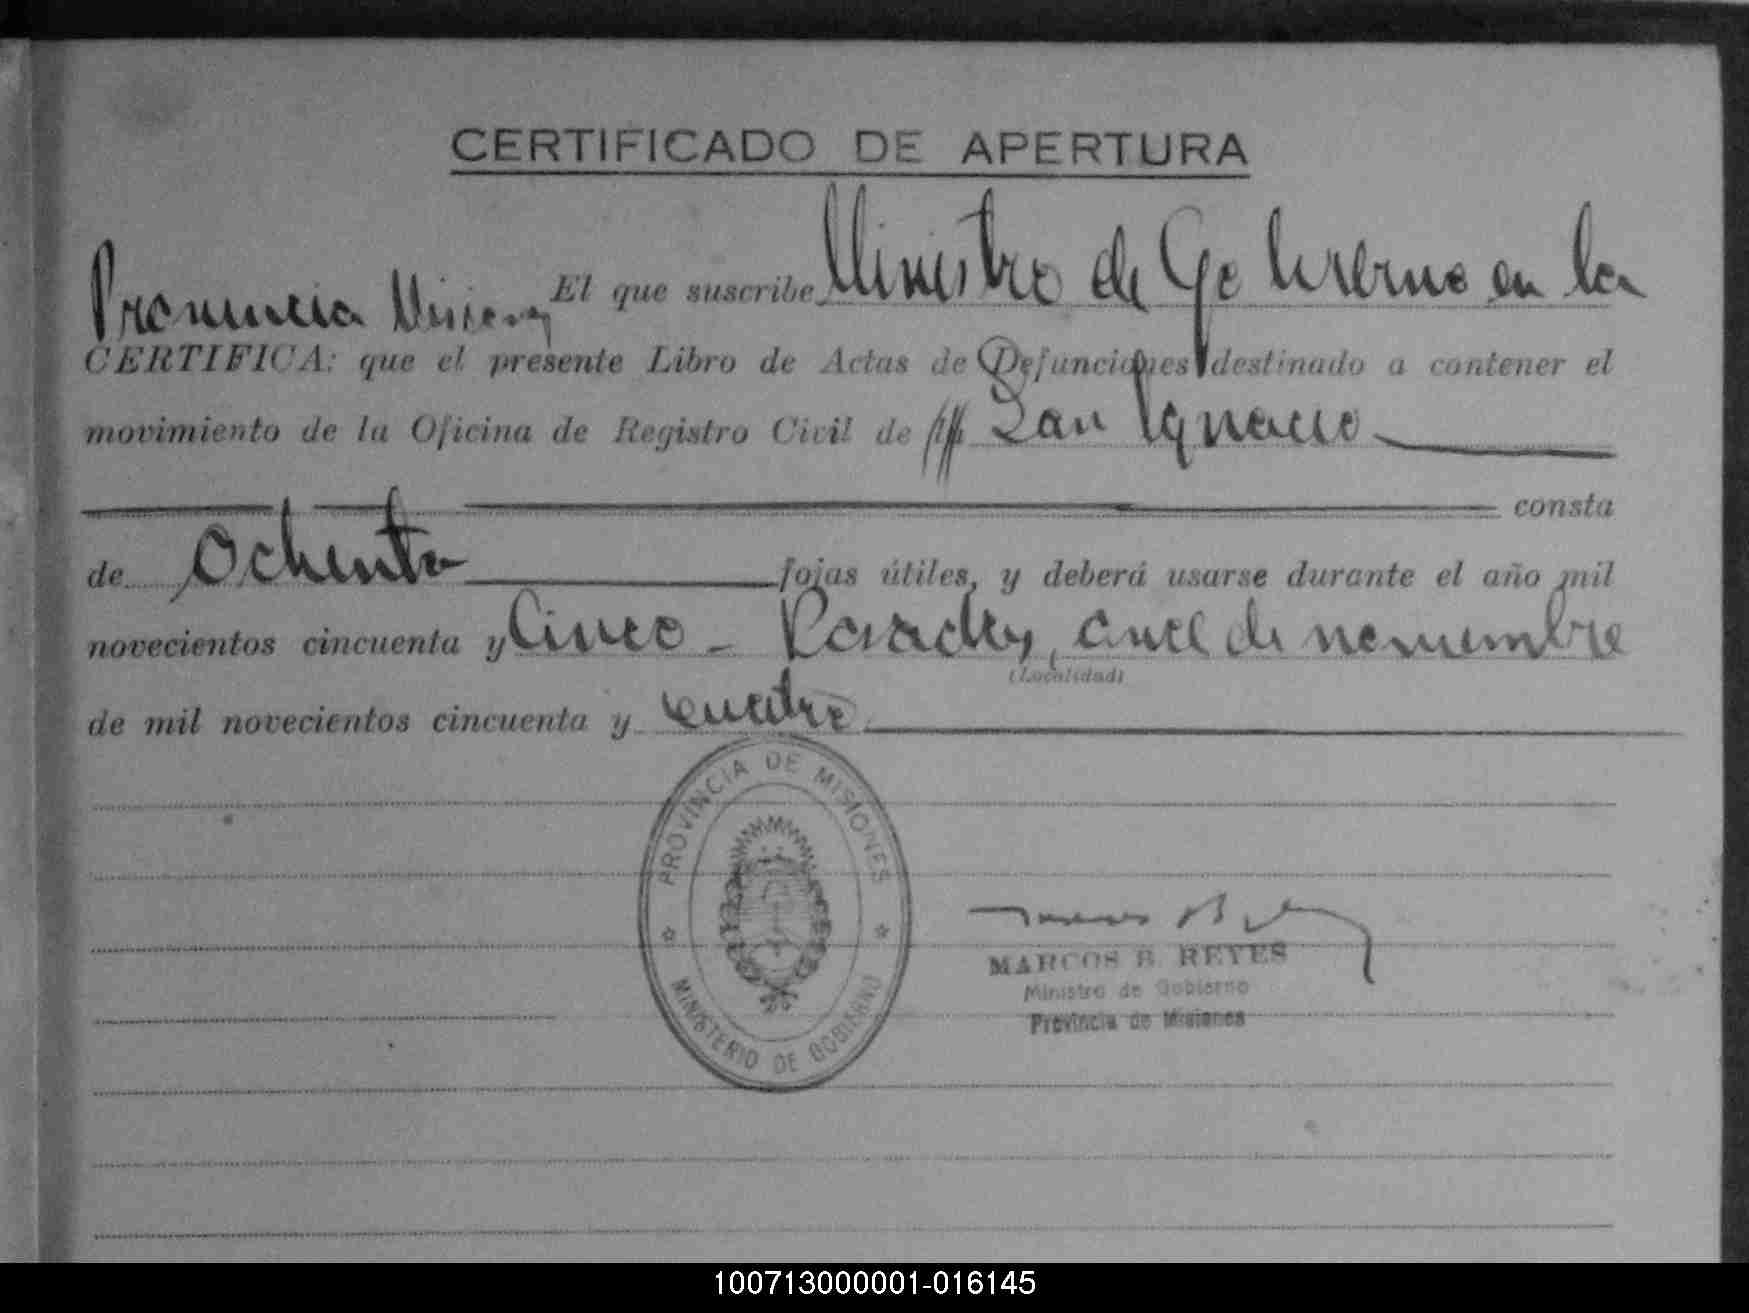 CERTIFICADO DE APERTURA
El que suscribe Ministro de Gobierno en la
Provincia Misiones
CERTIFICA: que el presente Libro de Actas de Defunciones destinado a contener el
movimiento de la Oficina de Registro Civil de San Ignacio
consta
de Ochenta fojas útiles, y deberá usarse durante el año mil
novecientos cincuenta y Cinco - Posadas, once de noviembre
(Localidad)
de mil novecientos cincuenta y cuatro
PROVINCIA DE MISIONES
MINISTERIO DE GOBIERNO
MARCOS B. REYES
Ministro de Gobierno
Provincia de Misiones
100713000001-016145